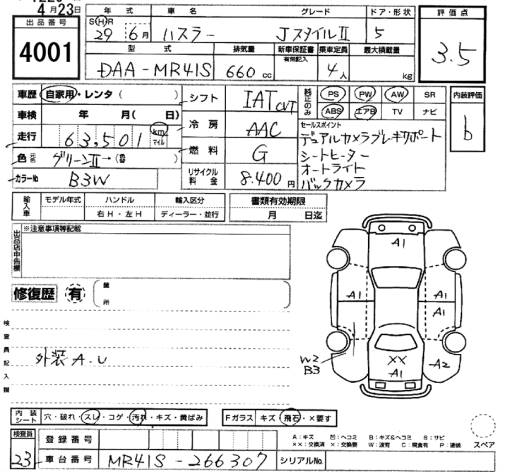 4月23日
出品番号
4001
年式 車名 グレード ドア・形状 評価点
SHR
29年 6月 ハスラー JスタイルⅡ 5
3.5
型式 排気量 新車保証書 乗車定員 最大積載量
有無記入
DAA-MR41S 660cc 4人 kg
車歴 自家用・レンタ( )
車検 年 月( 日)
走行 63,501 km マイル
色 グリーンⅡ→
カラーNo B3W
シフト IAT CVT
冷房 AAC
燃料 G
リサイクル料金 8.400円
PS PW AW SR
ABS エアB TV ナビ
セールスポイント
デュアルカメラブレーキサポート
シートヒーター
オートライト
バックカメラ
内装評価
b
輸入車 モデル年式 ハンドル 輸入区分
右H・左H ディーラー・並行
書類有効期限
月 日迄
出品店申告欄
※注意事項等記載
修復歴 有
箇所
検査員記入欄
外装A.U
A1
A1
A1
A1
W2
B3
XX
A1
A2
内装シート 穴・破れ・スレ・コゲ・汚れ・キズ・黄ばみ
Fガラス キズ・飛石・×要す
スペア
A:キズ 凹:ヘコミ B:キズ&ヘコミ S:サビ
××:交換済 ×:交換要 W:波有 C:腐食有 P:塗装
検査員
23
登録番号
車台番号 MR41S-266307 シリアルNo.